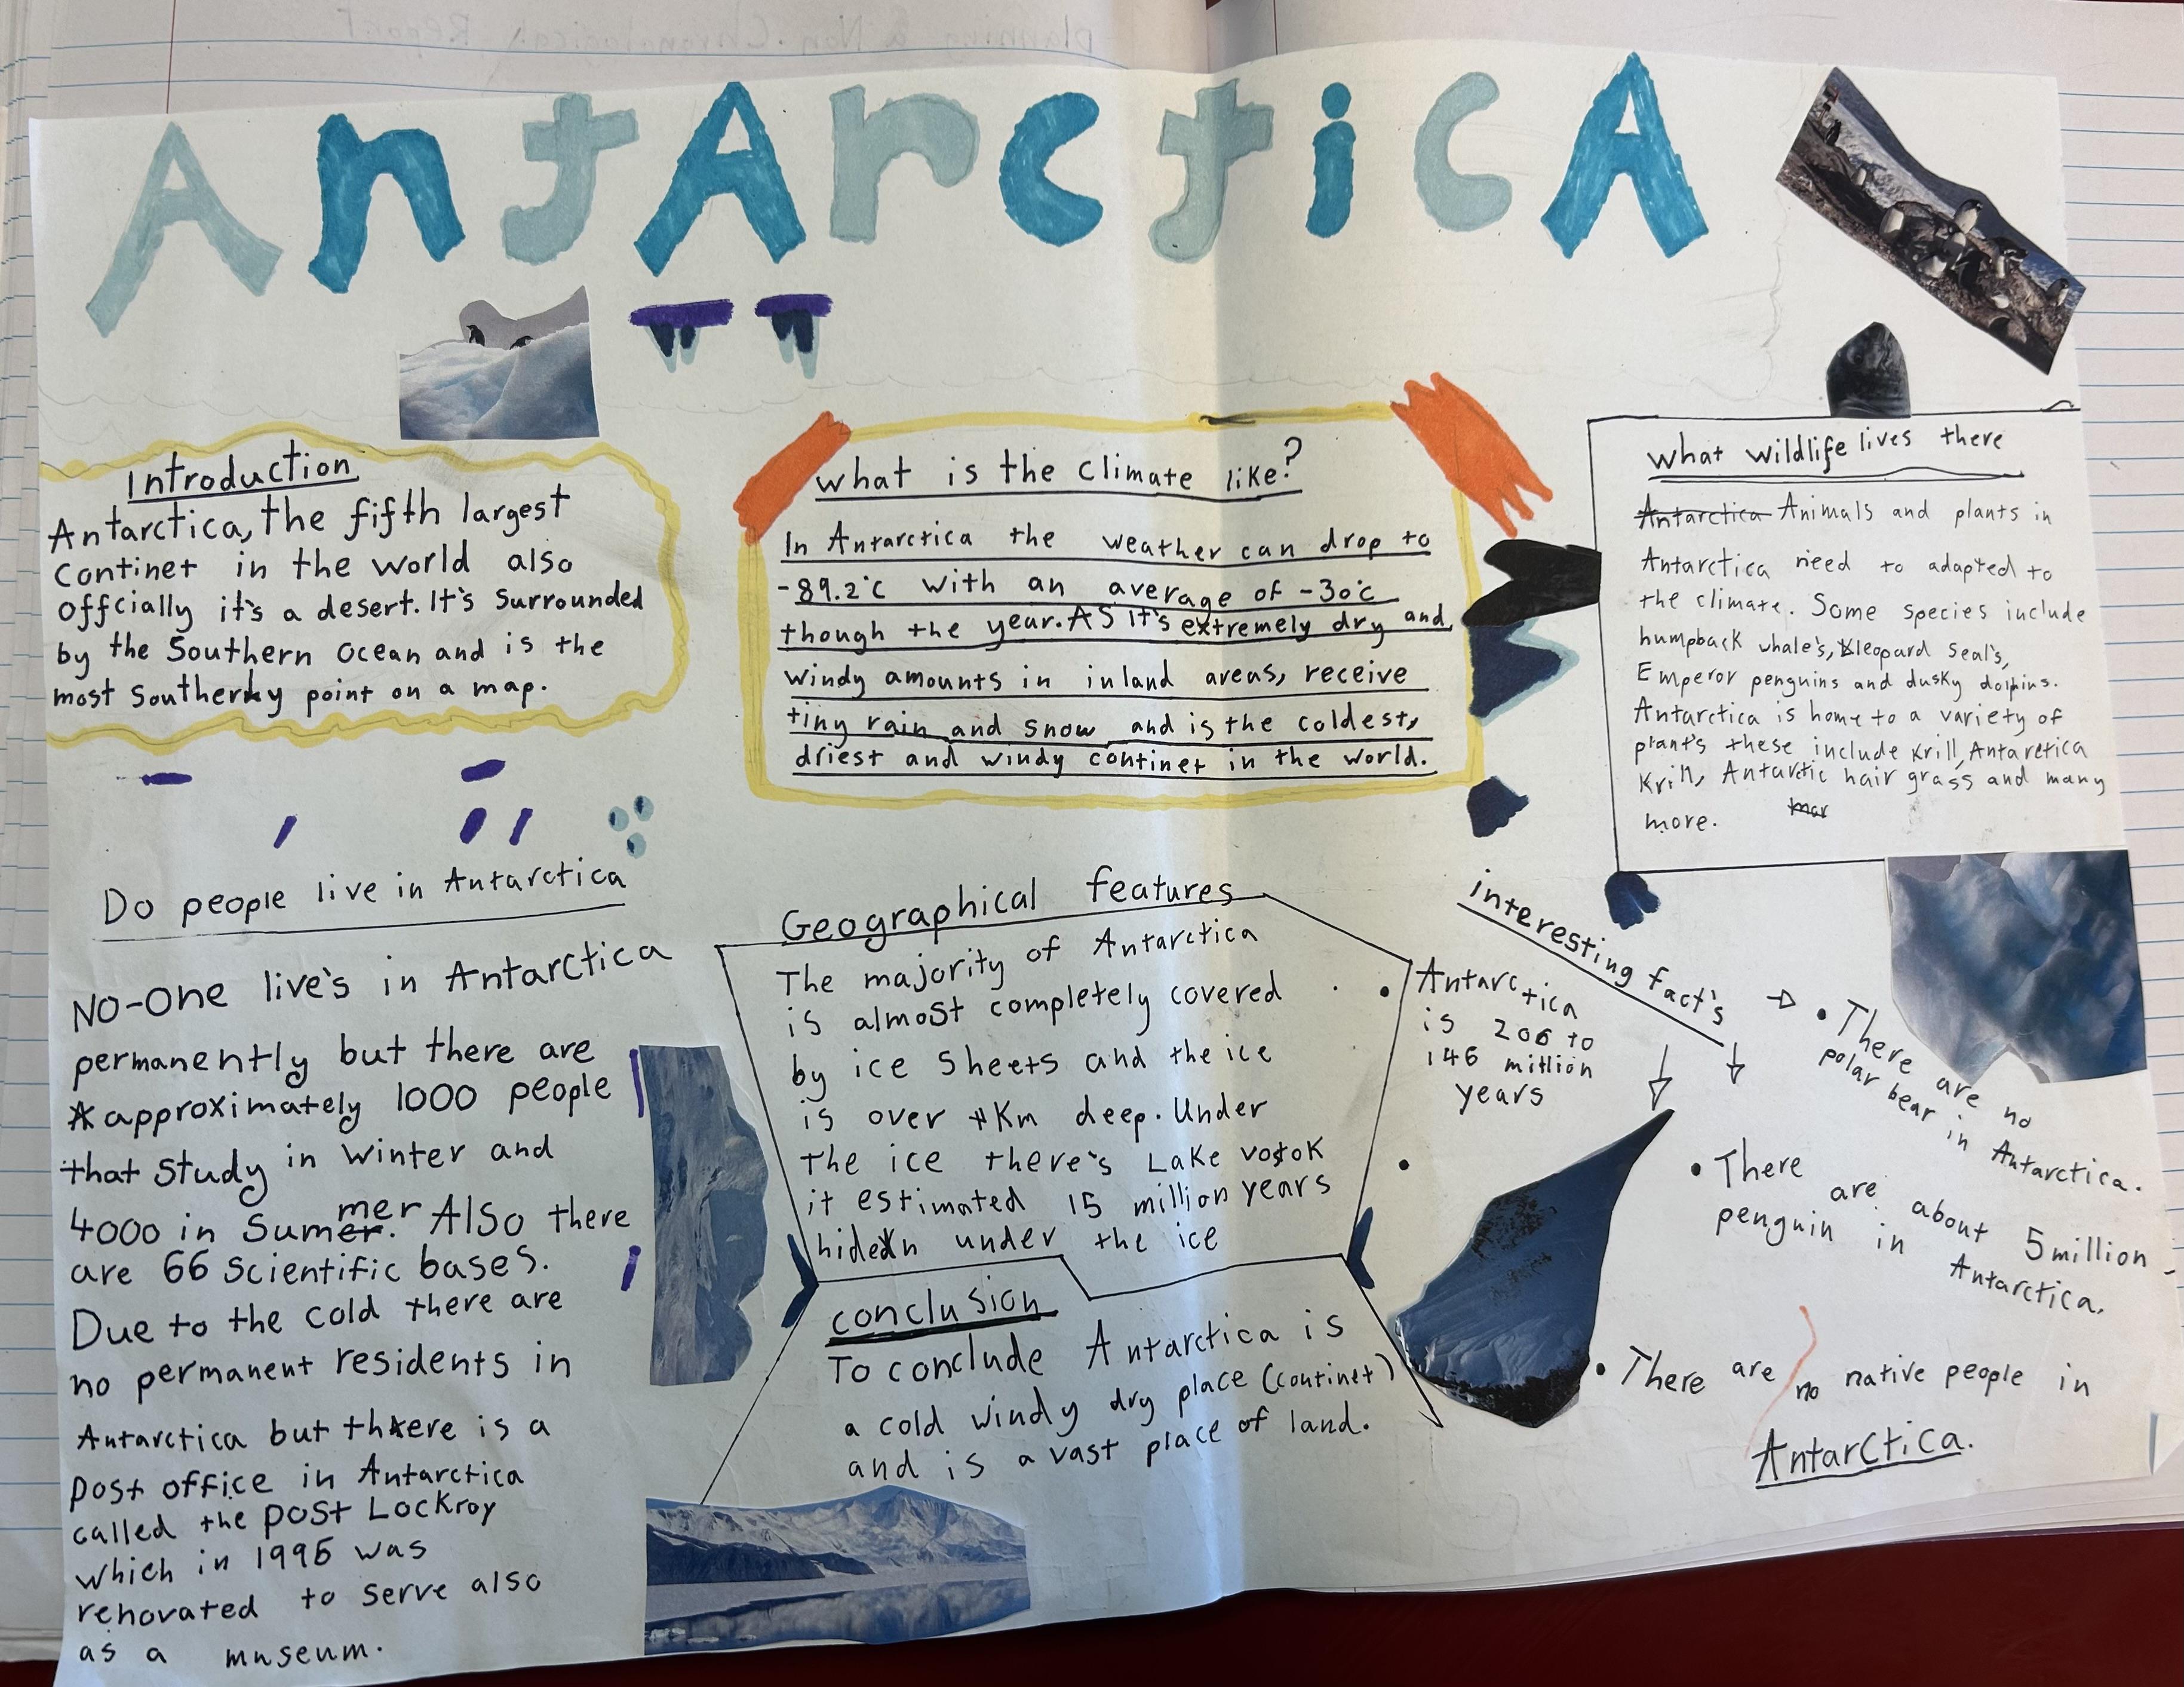 Planning a Non-Chronological Report
AntArcticA
Introduction
Antarctica, the fifth largest
Continet in the world also
offcially it's a desert. It's Surrounded
by the Southern Ocean and is the
most Southerky point on a map.
What is the Climate like?
In Antarctica the weather can drop to
-89.2°C with an average of -30°C
though the year. AS it's extremely dry and
windy amounts in inland areas, receive
tiny rain and snow and is the coldest,
driest and windy continet in the world.
What wildlife lives there
Antarctica Animals and plants in
Antarctica need to adapted to
the climate. Some species include
humpback whale's, leopard seal's,
Emperor penguins and dusky dolphins.
Antarctica is home to a variety of
plant's these include Krill, Antarctica
Krill, Antarctic hair grass and many
mor
more.
Do people live in Antarctica
NO-One live's in Antarctica
permanently but there are
approximately 1000 people
that study in winter and
4000 in Sumer. mer Also there
are 66 Scientific bases.
Due to the cold there are
no permanent residents in
Antarctica but there is a
post office in Antarctica
called the post Lockroy
which in 1996 was
renovated to serve also
as a museum.
Geographical features
The majority of Antarctica
is almost completely covered
by ice Sheets and the ice
is over 4Km deep. Under
the ice there's Lake vostok
it estimated 15 million years
hiden under the ice
conclusion
To conclude Antarctica is
a cold windy dry place (continet)
and is a vast place of land.
interesting fact's
• Antarctica
is 206 to
146 million
years
• There are no
polar bear in Antarctica.
• There are about 5 million
penguin in Antarctica.
• There are no native people in
Antarctica.